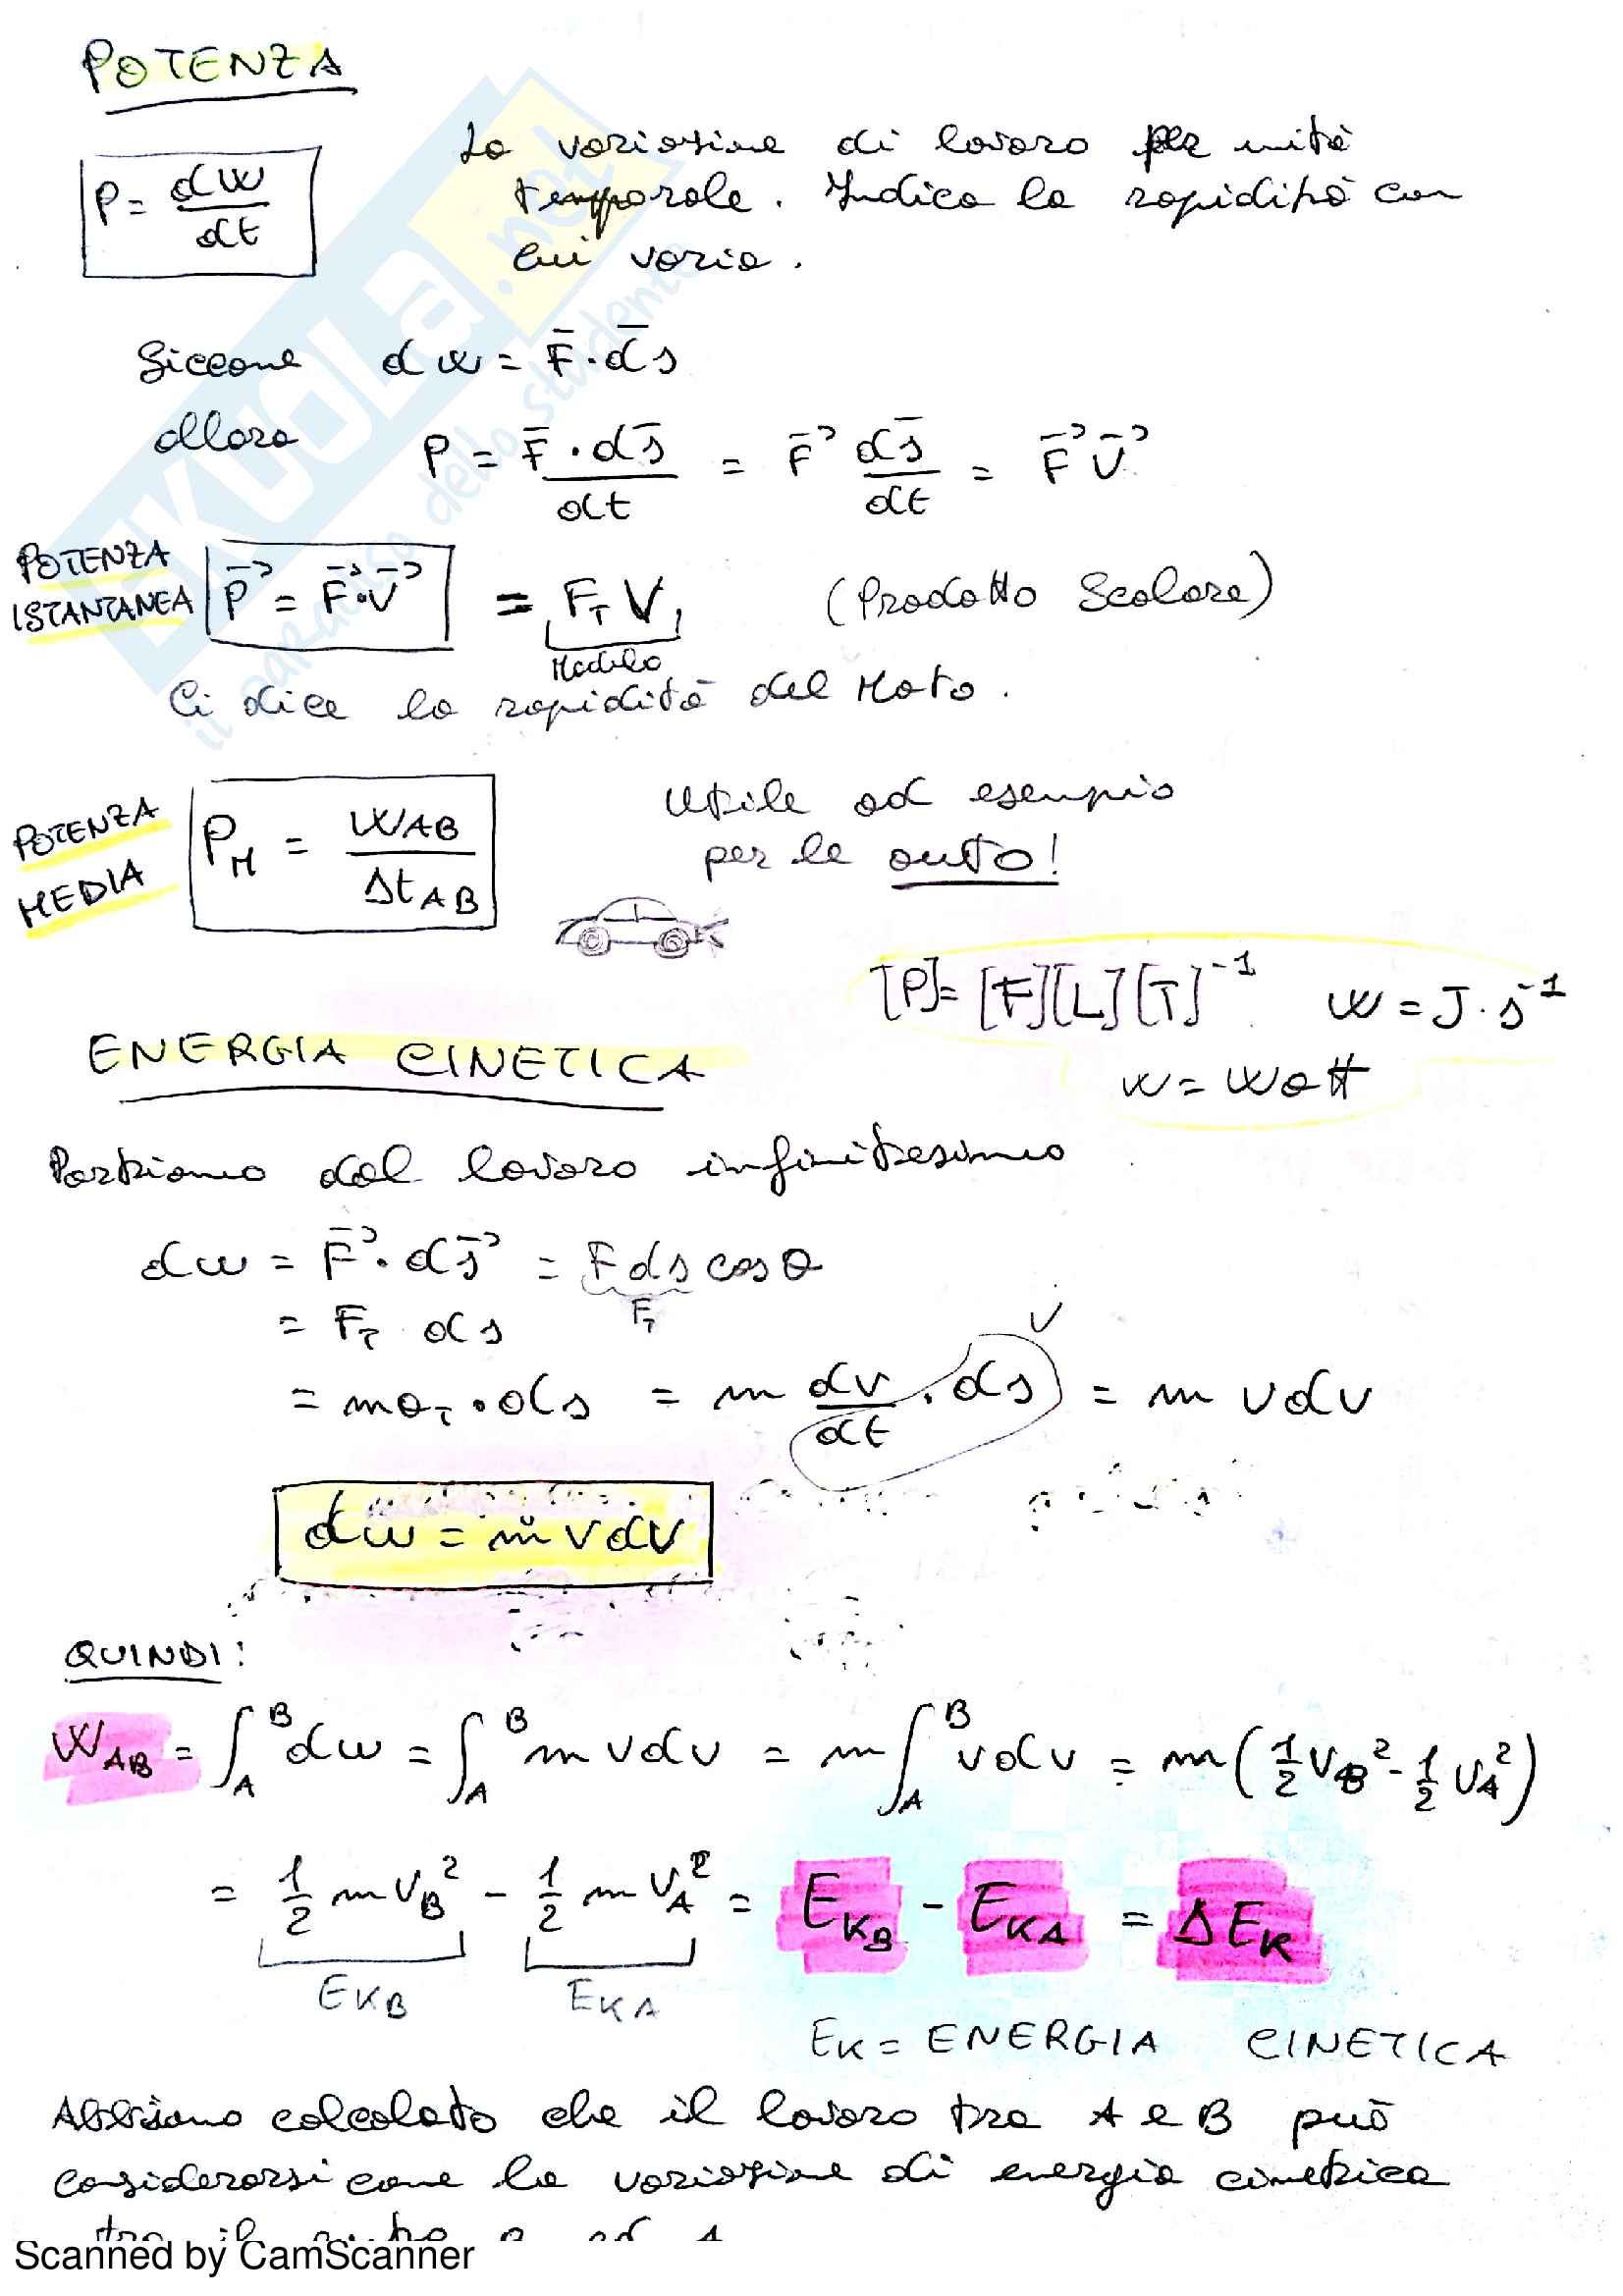 POTENZA
P = dW/dt
La variazione di lavoro per unità
temporale. Indica la rapidità con
cui varia.
Siccome dW = F̄ · d̄s
allora P = F̄ · ds̄ / dt = F⃗ ds̄/dt = F⃗ V⃗
POTENZA ISTANTANEA P⃗ = F⃗ · V⃗ = F_T V (Prodotto Scalare)
Modulo
Ci dice la rapidità del Moto.
POTENZA MEDIA P_M = W_AB / Δt_AB
Utile ad esempio
per le auto!
[P] = [F][L][T]⁻¹ W = J · s⁻¹
W = Watt
ENERGIA CINETICA
Partiamo dal lavoro infinitesimo
dw = F⃗ · ds⃗ = F ds cos θ
F_T
= F_T ds
V
= m a_T · ds = m dv/dt · ds = m v dv
dw = m v dv
QUINDI:
W_AB = ∫_A^B dw = ∫_A^B m v dv = m ∫_A^B v dv = m (1/2 V_B² - 1/2 V_A²)
= 1/2 m V_B² - 1/2 m V_A² = E_KB - E_KA = Δ E_K
E_KB E_KA
E_K = ENERGIA CINETICA
Abbiamo calcolato che il lavoro tra A e B può
considerarsi come la variazione di energia cinetica
Scanned by CamScanner
SKUOLA.net
il paradiso dello studente